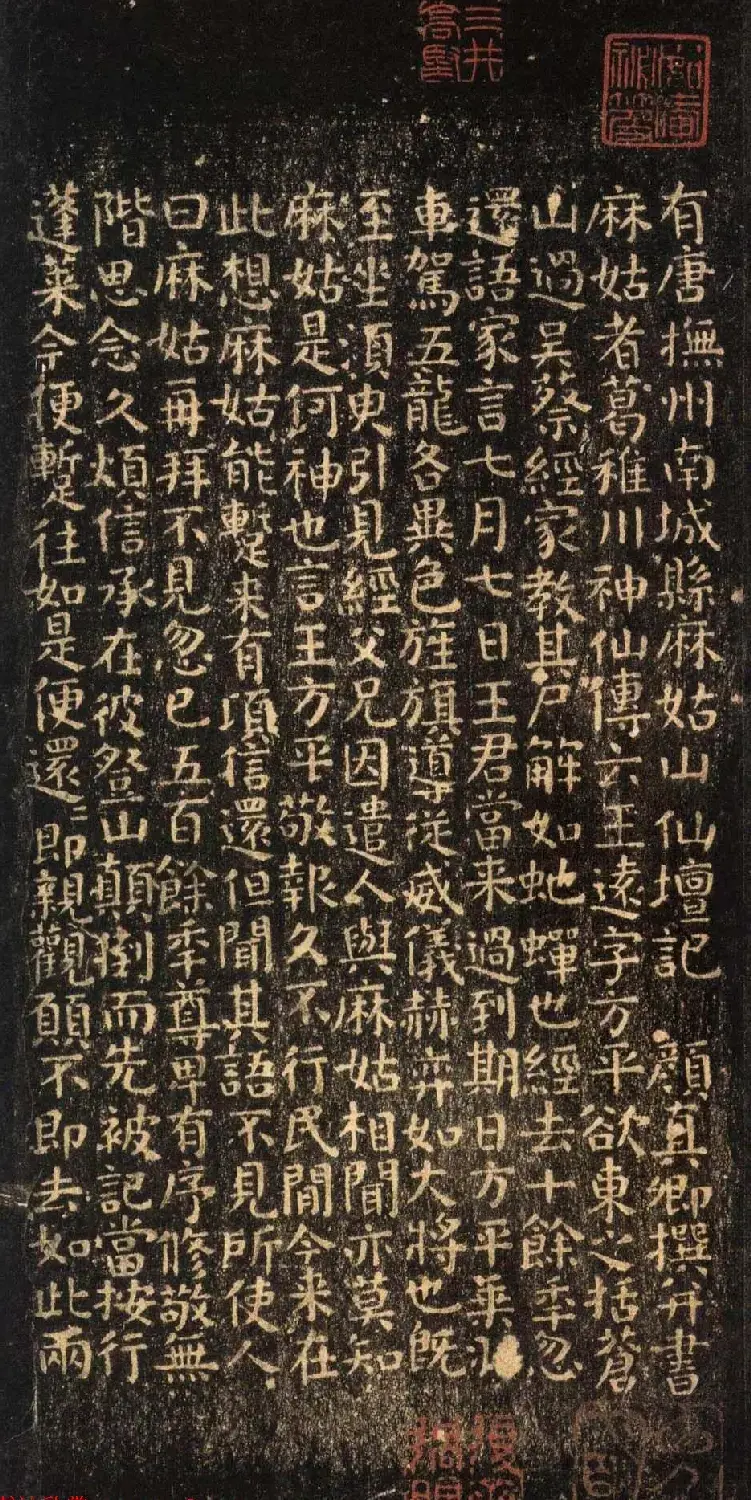 有唐撫州南城縣麻姑山仙壇記 顏真卿撰并書
麻姑者葛稚川神仙傳云王遠字方平欲東之括蒼
山過吳蔡經家教其尸解如虵蟬也經去十餘年忽
還語家言七月七日王君當来過到期日方平乗
車駕五龍各異色旌旗導從威儀赫弈如大將也既
至坐須臾引見經父兄因遣人與麻姑相聞亦莫知
麻姑是何神也言王方平敬報久不行民間今来在
此想麻姑能暫来有頃信還但聞其語不見所使人
曰麻姑再拜不見忽已五百餘年尊卑有序修敬無
階思念久煩信承在彼登山顛倒而先被記當按行
蓬萊今便暫往如是便還還即親觀願不即去如此兩
三井